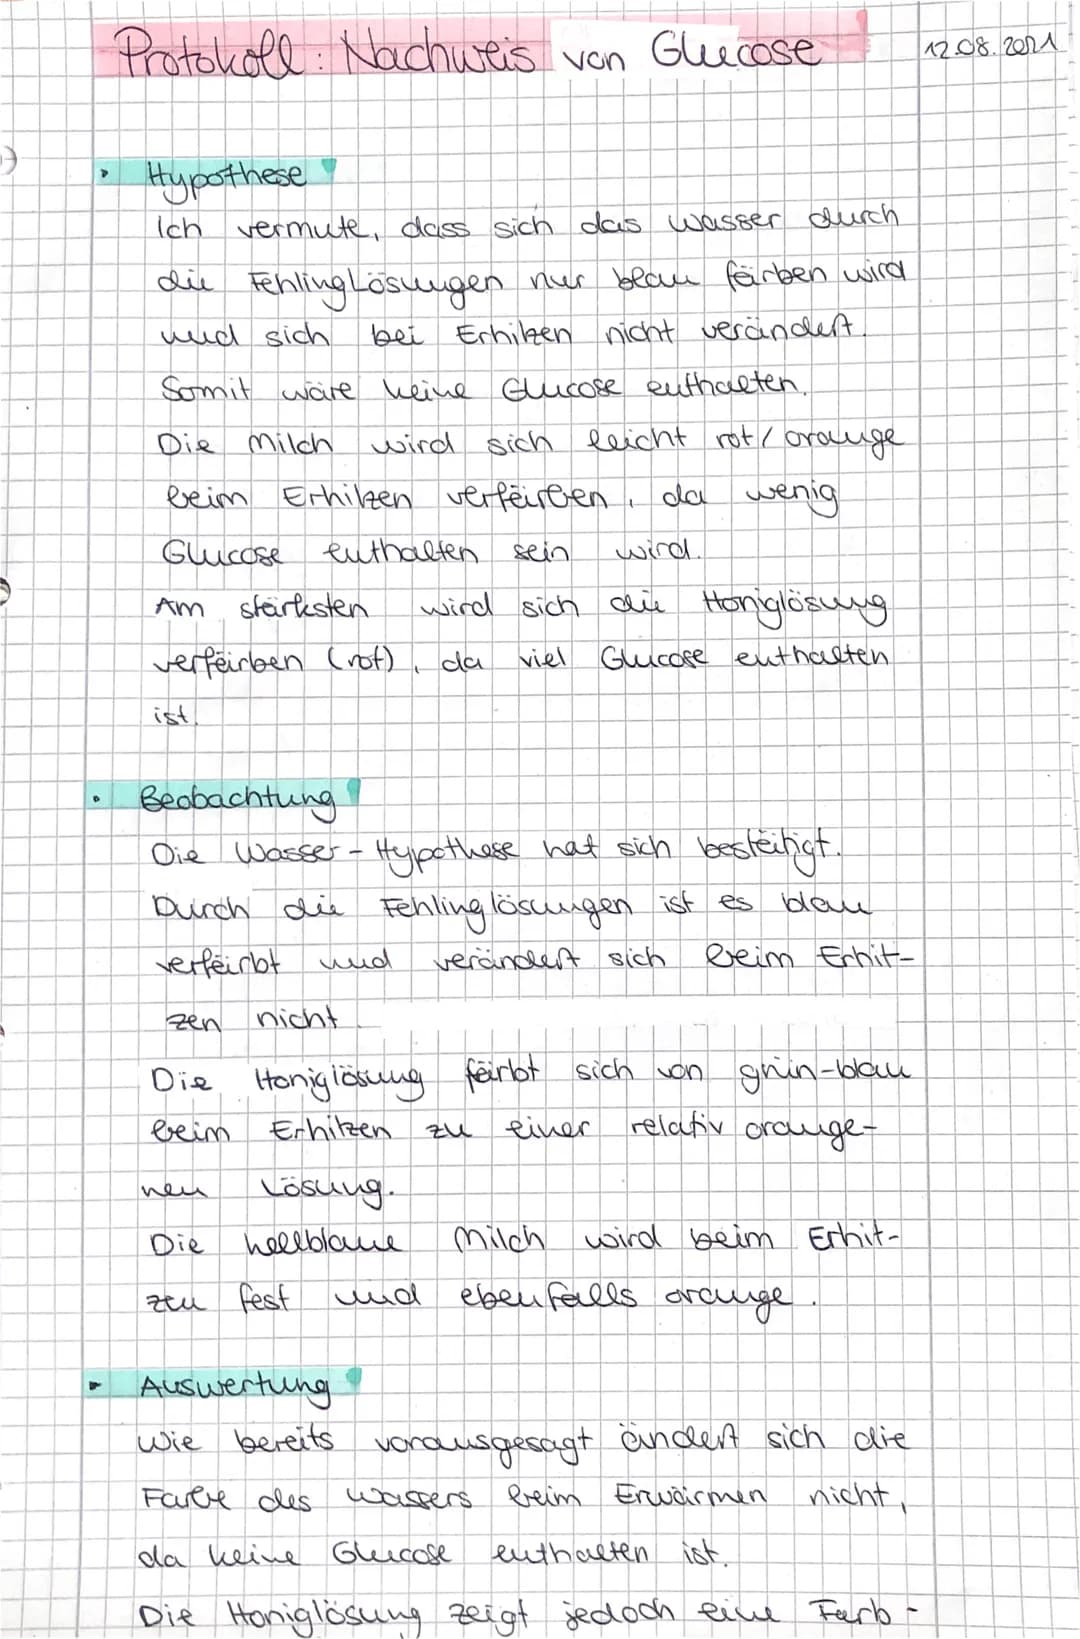 Protokoll: Nachweis von Glucose
12.08.2021
Hypothese
Ich vermute, dass sich das Wasser durch
die Fehling Lösungen nur blau färben wird
und sich bei Erhitzen nicht verändert.
Somit wäre keine Glucose enthalten.
Die Milch wird sich leicht rot/orange
beim Erhitzen verfärben, da wenig
Glucose enthalten sein wird.
Am stärksten wird sich die Honiglösung
verfärben (rot), da viel Glucose enthalten
ist.
Beobachtung
Die Wasser-Hypothese hat sich bestätigt.
Durch die Fehlinglösungen ist es blau
verfärbt und verändert sich beim Erhit-
zen nicht.
Die Honiglösung färbt sich von grün-blau
beim Erhitzen zu einer relativ orange-
nen Lösung.
Die hellblaue Milch wird beim Erhit-
zen fest und ebenfalls orange.
Auswertung
Wie bereits vorausgesagt ändert sich die
Farbe des Wassers beim Erwärmen nicht,
da keine Glucose enthalten ist.
Die Honiglösung zeigt jedoch eine Farb-